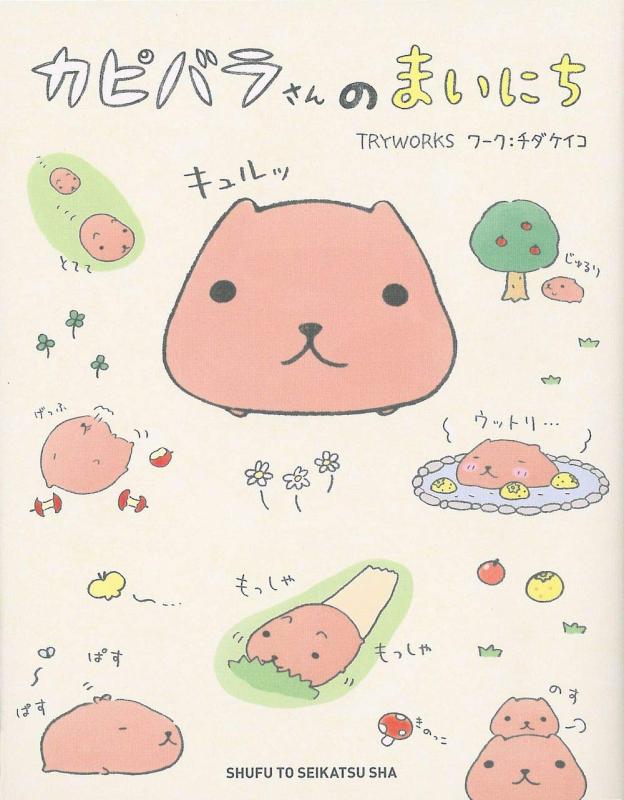 カピバラさんのまいにち
TRYWORKS ワーク:チダケイコ
キュルッ
とてて
じゅるり
げっふ
ウットリ…
もっしゃ
もっしゃ
ぱす
ぱす
きのっこ
のす
SHUFU TO SEIKATSU SHA